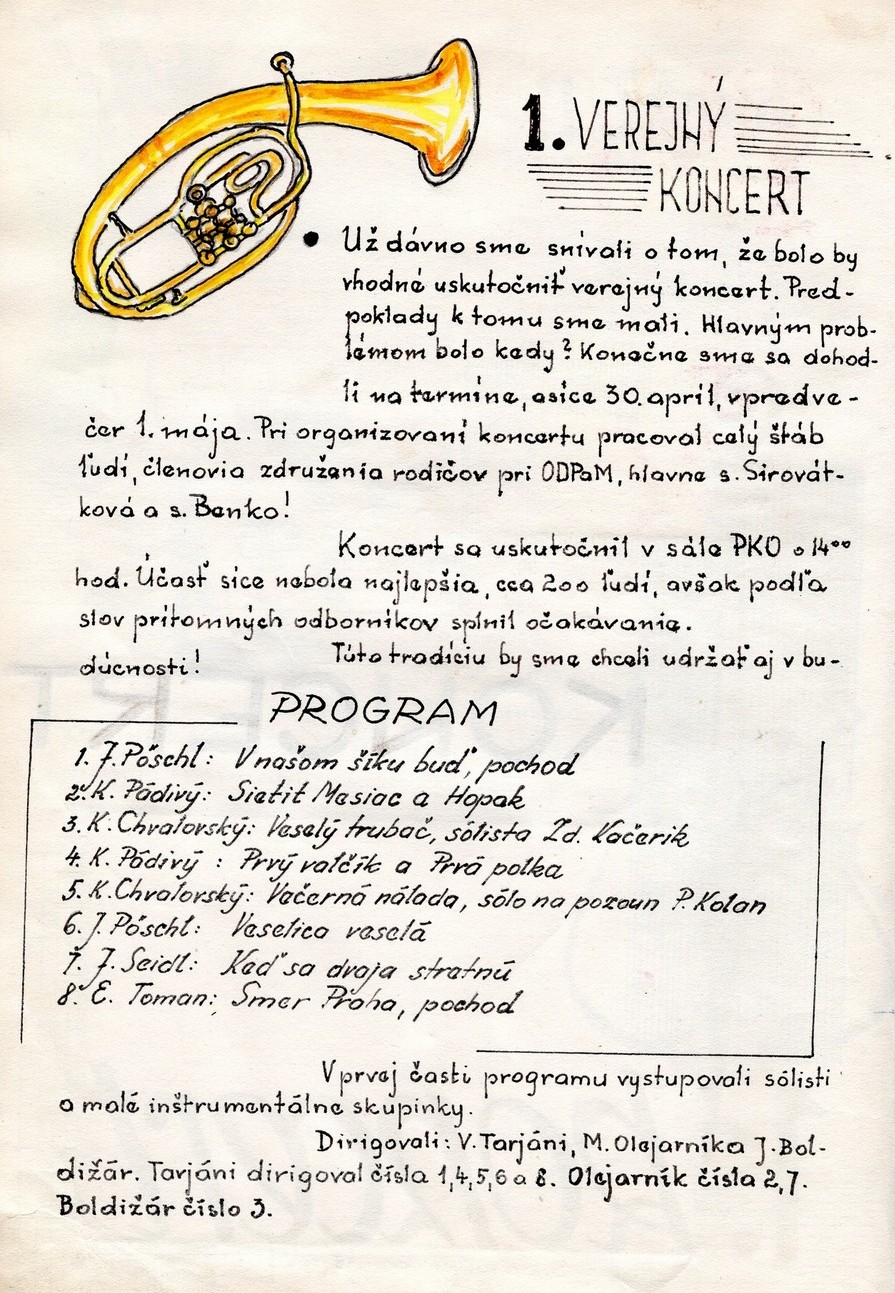 1. VEREJNÝ
KONCERT
Už dávno sme snívali o tom, že bolo by
vhodné uskutočniť verejný koncert. Pred-
poklady k tomu sme mali. Hlavným prob-
lémom bolo kedy? Konečne sme sa dohod-
li na termíne, asice 30. april, vpredve-
čer 1. mája. Pri organizovaní koncertu pracoval celý štáb
ľudí, členovia združenia rodičov pri ODPaM, hlavne s. Sirovát-
ková a s. Benko!
Koncert sa uskutočnil v sále PKO o 14⁰⁰
hod. Účasť sice nebola najlepšia, cca 200 ľudí, avšak podľa
slov prítomných odborníkov splnil očakávanie.
Túto tradíciu by sme chceli udržať aj v bu-
dúcnosti!
PROGRAM
1. J. Pöschl: V našom šíku buď, pochod
2. K. Pádivý: Sietil Mesiac a Hopak
3. K. Chvatovský: Veselý trubač, sólista Zd. Kačerik
4. K. Pádivý: Prvý valčík a Prvá polka
5. K. Chvatovský: Večerná nálada, sólo na pozoun P. Kolan
6. J. Pöschl: Veselica veselá
7. J. Seidl: Keď sa dvaja stretnú
8. E. Toman: Smer Praha, pochod
V prvej časti programu vystupovali sólisti
a malé inštrumentálne skupinky.
Dirigovali: V. Tarjáni, M. Olejarníka J. Bol-
dižár. Tarjáni dirigoval čísla 1,4,5,6 a 8. Olejarník čísla 2,7.
Boldižár číslo 3.